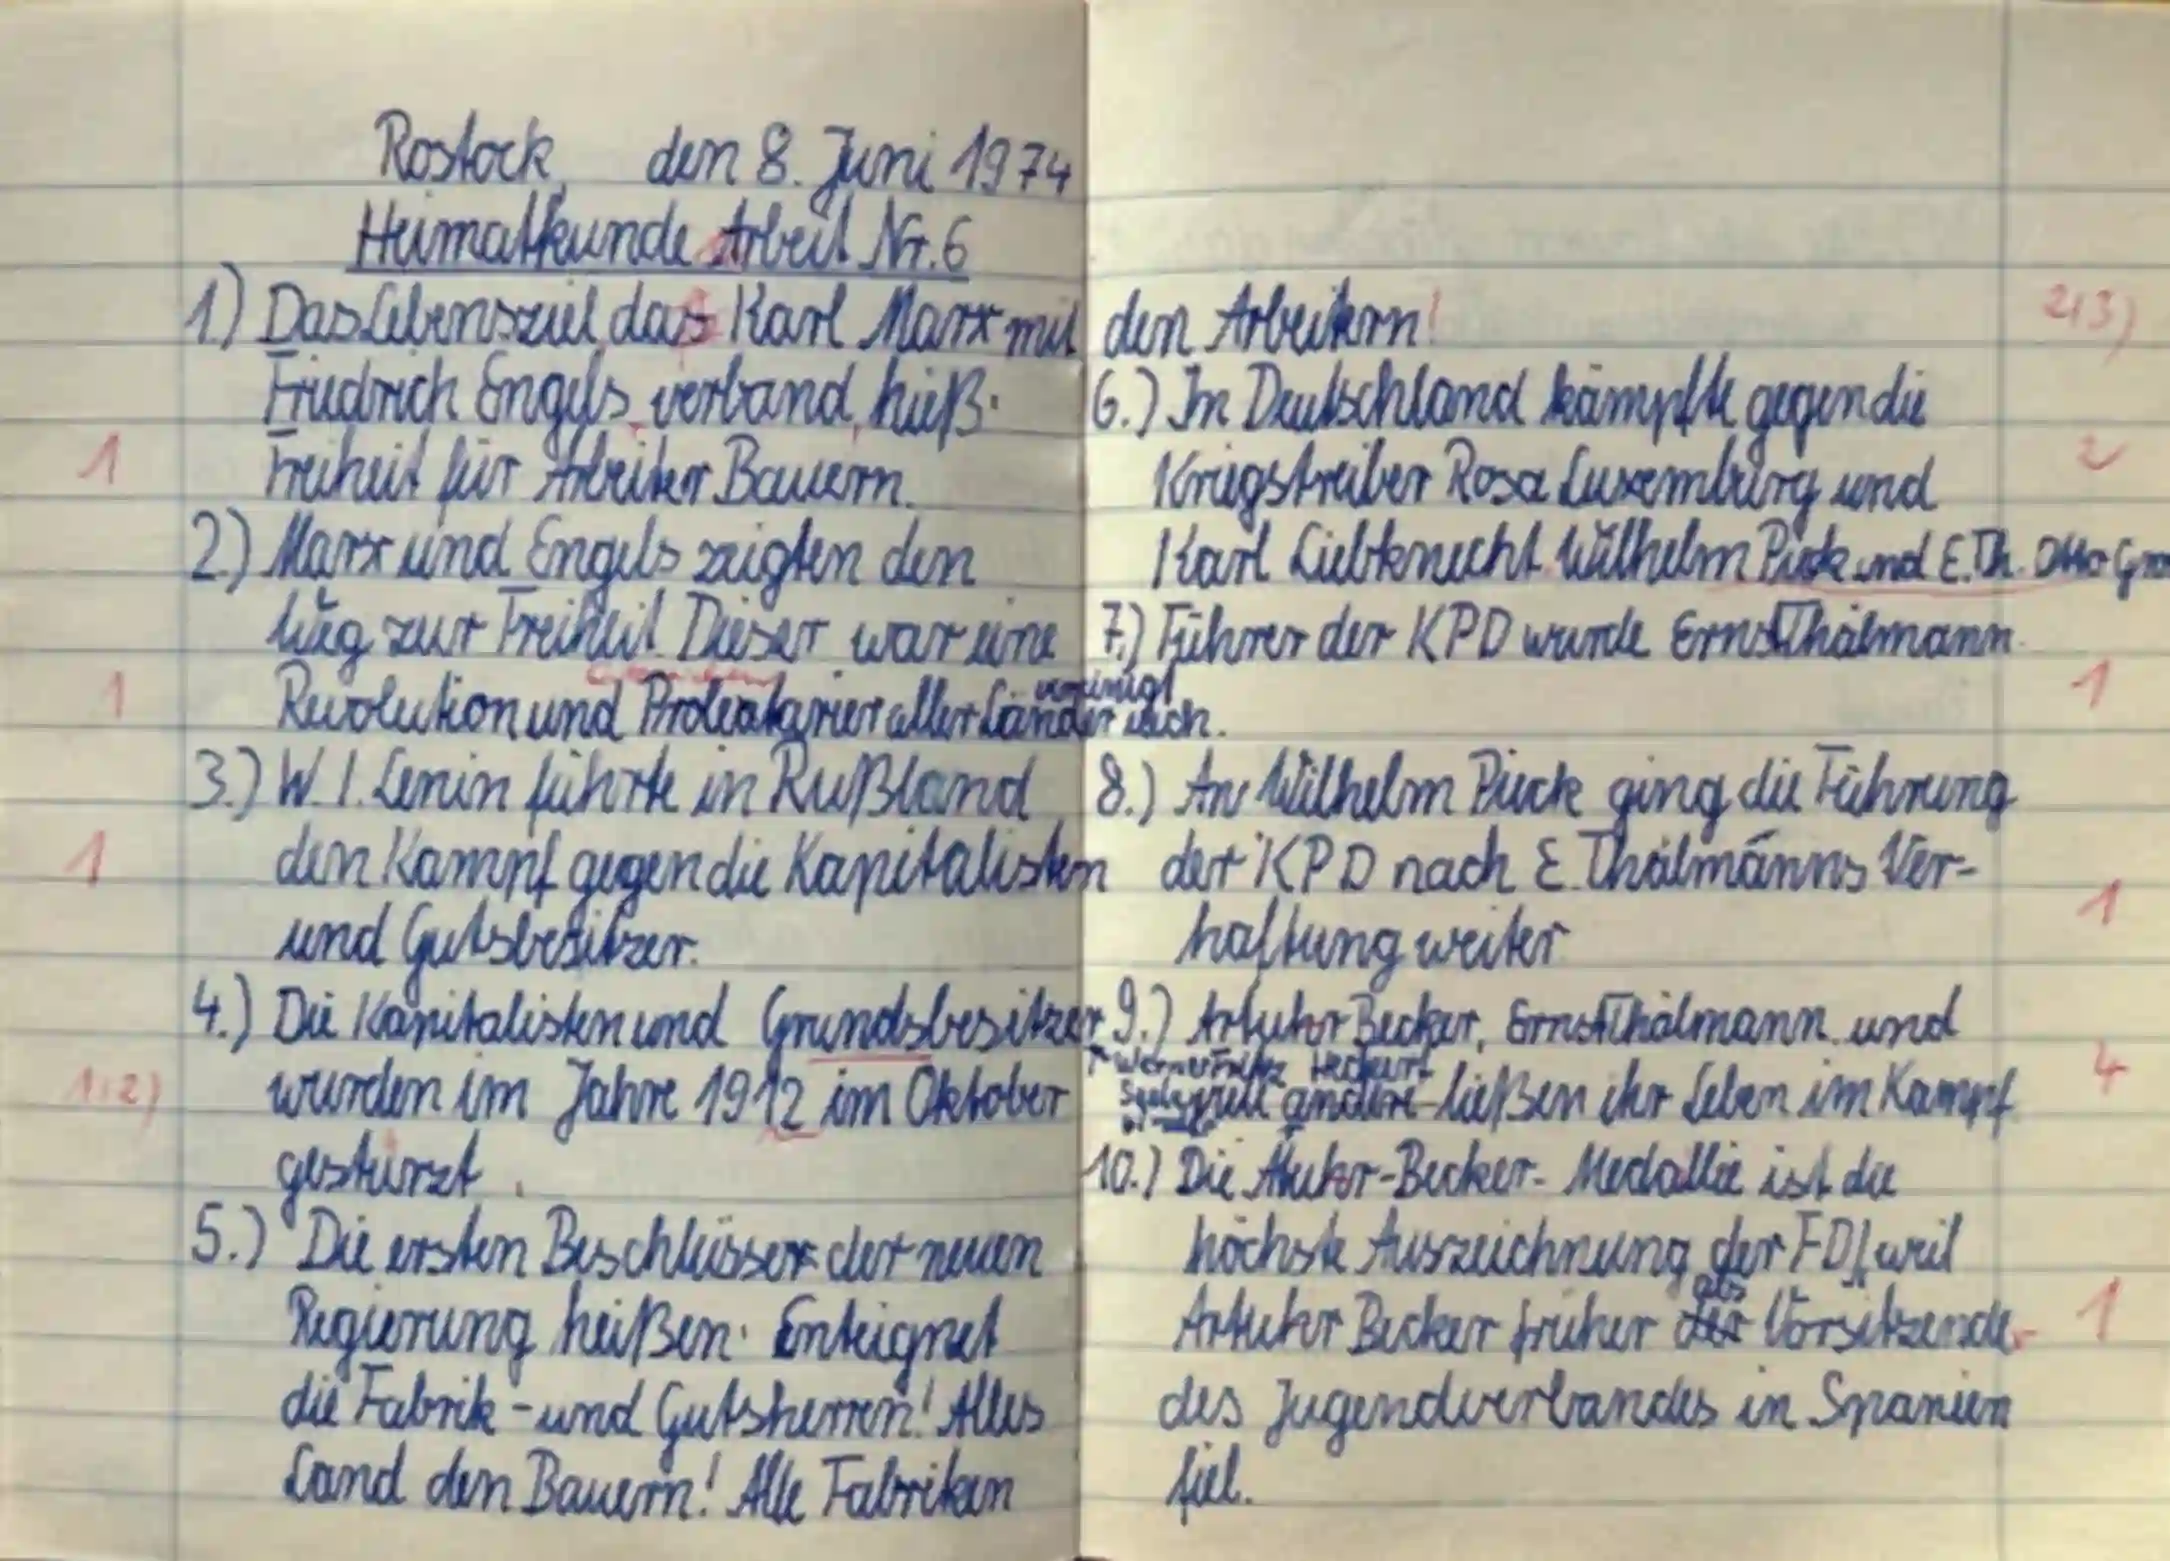 Rostock, den 8. Juni 1974
Heimatkunde Arbeit Nr. 6
1.) Das Lebensziel, das Karl Marx mit
Friedrich Engels verband, hieß:
Freiheit für Arbeiter Bauern.
1
2.) Marx und Engels zeigten den
Weg zur Freiheit. Dieser war eine
Revolution und Proleatarier aller Länder vereinigt euch.
1
3.) W. I. Lenin führte in Rußland
den Kampf gegen die Kapitalisten
1
und Gutsbesitzer.
4.) Die Kapitalisten und Grundsbesitzer
wurden im Jahre 1912 im Oktober
1(2)
gestürzt.
5.) Die ersten Beschlüsser der neuen
Regierung heißen: Enteignet
die Fabrik- und Gutsherren! Alles
Land den Bauern! Alle Fabriken
den Arbeitern!
2(3)
6.) In Deutschland kämpfte gegen die
Kriegstreiber Rosa Luxemburg und
2
Karl Liebknecht. Wilhelm Pieck und E. Th. Otto
7.) Führer der KPD wurde Ernst Thälmann.
1
8.) An Wilhelm Pieck ging die Führung
der KPD nach E. Thälmanns Ver-
1
haftung weiter.
9.) Arthur Becker, Ernst Thälmann und
Werner Fritz Heckert
viele andere ließen ihr Leben im Kampf.
4
10.) Die Athur-Becker-Medallie ist die
höchste Auszeichnung der FDJ, weil
Arthur Becker früher der als Vorsitzende
1
des Jugendverbandes in Spanien
fiel.